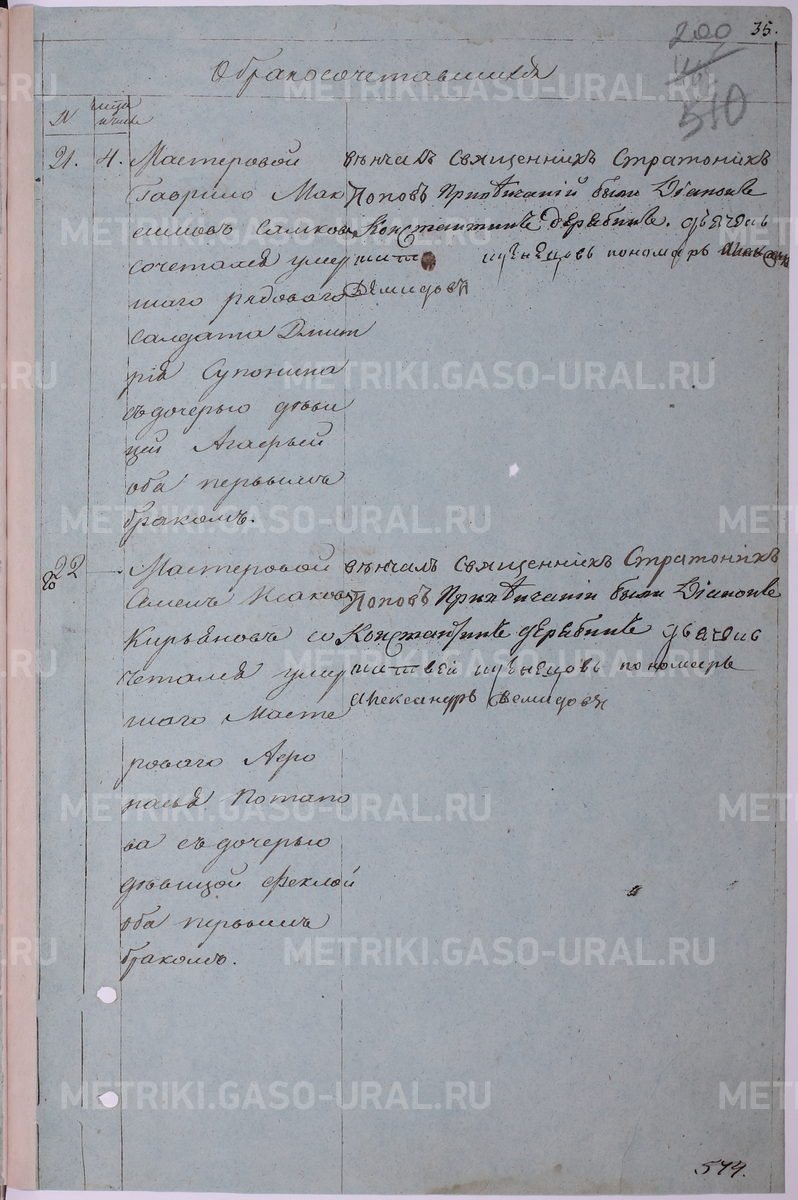 35.
200
510
О бракосочетавшихся
№
числа
21. 4. Мастеровой
Гаврило Мак
симовъ Самков
сочетался умер
шаго рядоваго
солдата Дмит
рія Супонина
съ дочерью дѣви
цей Агафьей
оба первымъ
бракомъ.
вѣнчалъ Священникъ Стратоникъ
Поповъ При вѣнчаніи были Діаконъ
Константинъ Дерябинъ. дьячекъ
пономарь
Демидовъ
22 Мастеровой
Семенъ Исаковъ
Кирьяновъ со
четался умер
шаго Масте
роваго Афо
насья Потапо
ва съ дочерью
дѣвицой Феклой
оба первымъ
бракомъ.
вѣнчалъ Священникъ Стратоникъ
Поповъ При вѣнчаніи были Діаконъ
Константинъ дерябинъ дьячекъ
матвей кузнецовъ пономарь
Александръ Демидовъ
574.
METRIKI.GASO-URAL.RU